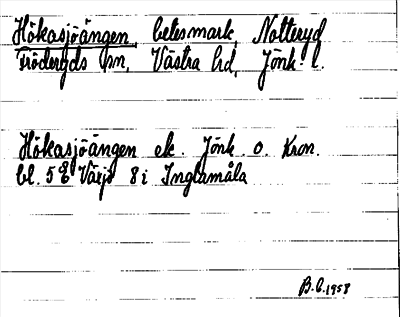 Hökasjöängen, betesmark, Notteryd
Fröderyds sn, Västra hd, Jönk. l.
Hökasjöängen ek. Jönk. o. Kron.
bl. 5 E Värjö 8 i Inglamåla
B.C. 1958